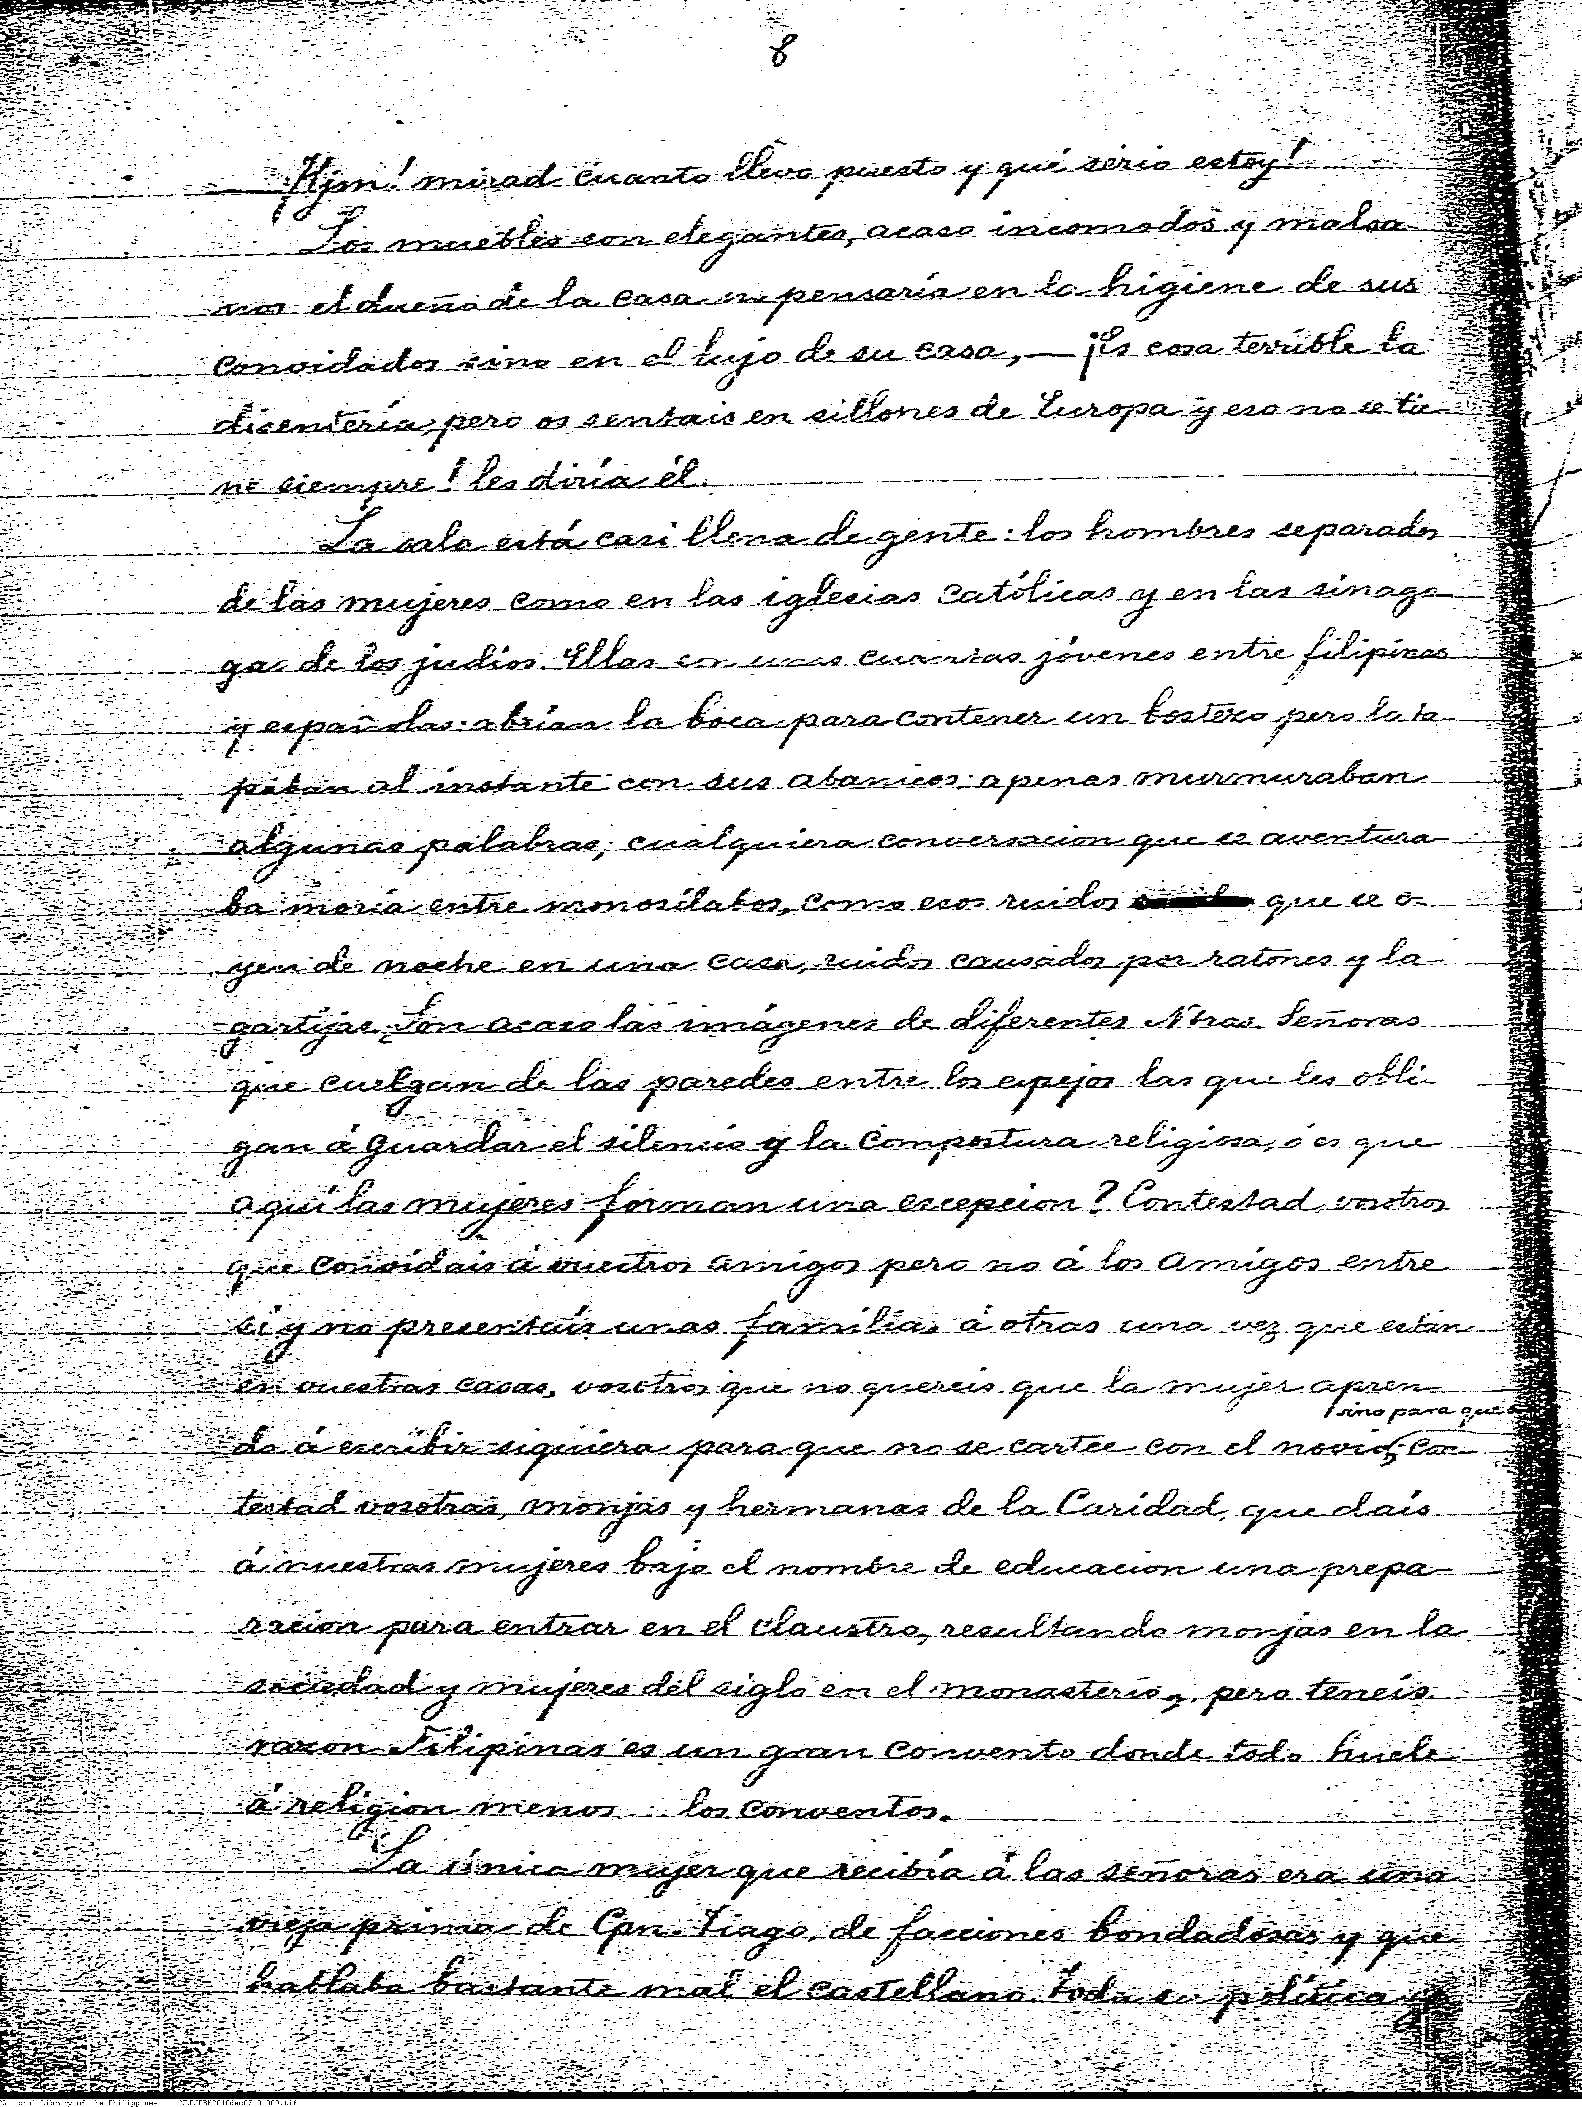 8
¡Hjm! mirad cuanto llevo puesto y qué sério estoy!
Los muebles son elegantes, acaso incomodos y malsa-
nos el dueño de la casa no pensaría en la higiene de sus
convidados sino en el lujo de su casa, — ¡Es cosa terrible la
disentería, pero os sentais en sillones de Europa y eso no se tie-
ne siempre! les diría él.
La sala está casi llena de gente: los hombres separados
de las mujeres como en las iglesias católicas y en las sinago-
gas de los judíos. Ellas son unas cuantas jóvenes entre filipinas
y españolas: abrían la boca para contener un bostezo pero la ta-
paban al instante con sus abanicos: apenas murmuraban
algunas palabras; cualquiera conversacion que se aventura-
ba moría entre monosílabos, como esos ruidos que se o-
yen de noche en una casa, ruidos causados por ratones y la-
gartijas. Son acaso las imágenes de diferentes Ntras. Señoras
que cuelgan de las paredes entre los espejos las que les obli-
gan á guardar el silencio y la compostura religiosa, ó es que
aquí las mujeres forman una escepcion? Contestad vosotros
que convidais á vuestros amigos pero no á los amigos entre
sí y no presentais unas familias á otras una vez que están
en vuestras casas, vosotros que no quereis que la mujer apren-
sino para que
da á escribir siquiera para que no se cartee con el novio; Con-
testad vosotras, monjas y hermanas de la Caridad, que dais
á nuestras mujeres bajo el nombre de educacion una prepa-
racion para entrar en el claustro, resultando monjas en la
sociedad y mujeres del siglo en el monasterio, pero teneis
razon Filipinas es un gran convento donde todo huele
á religion menos los conventos.
La única mujer que recibía á las señoras era una
vieja prima de Cpn. Tiago, de facciones bondadosas y que
hablaba bastante mal el castellano. Toda su política y